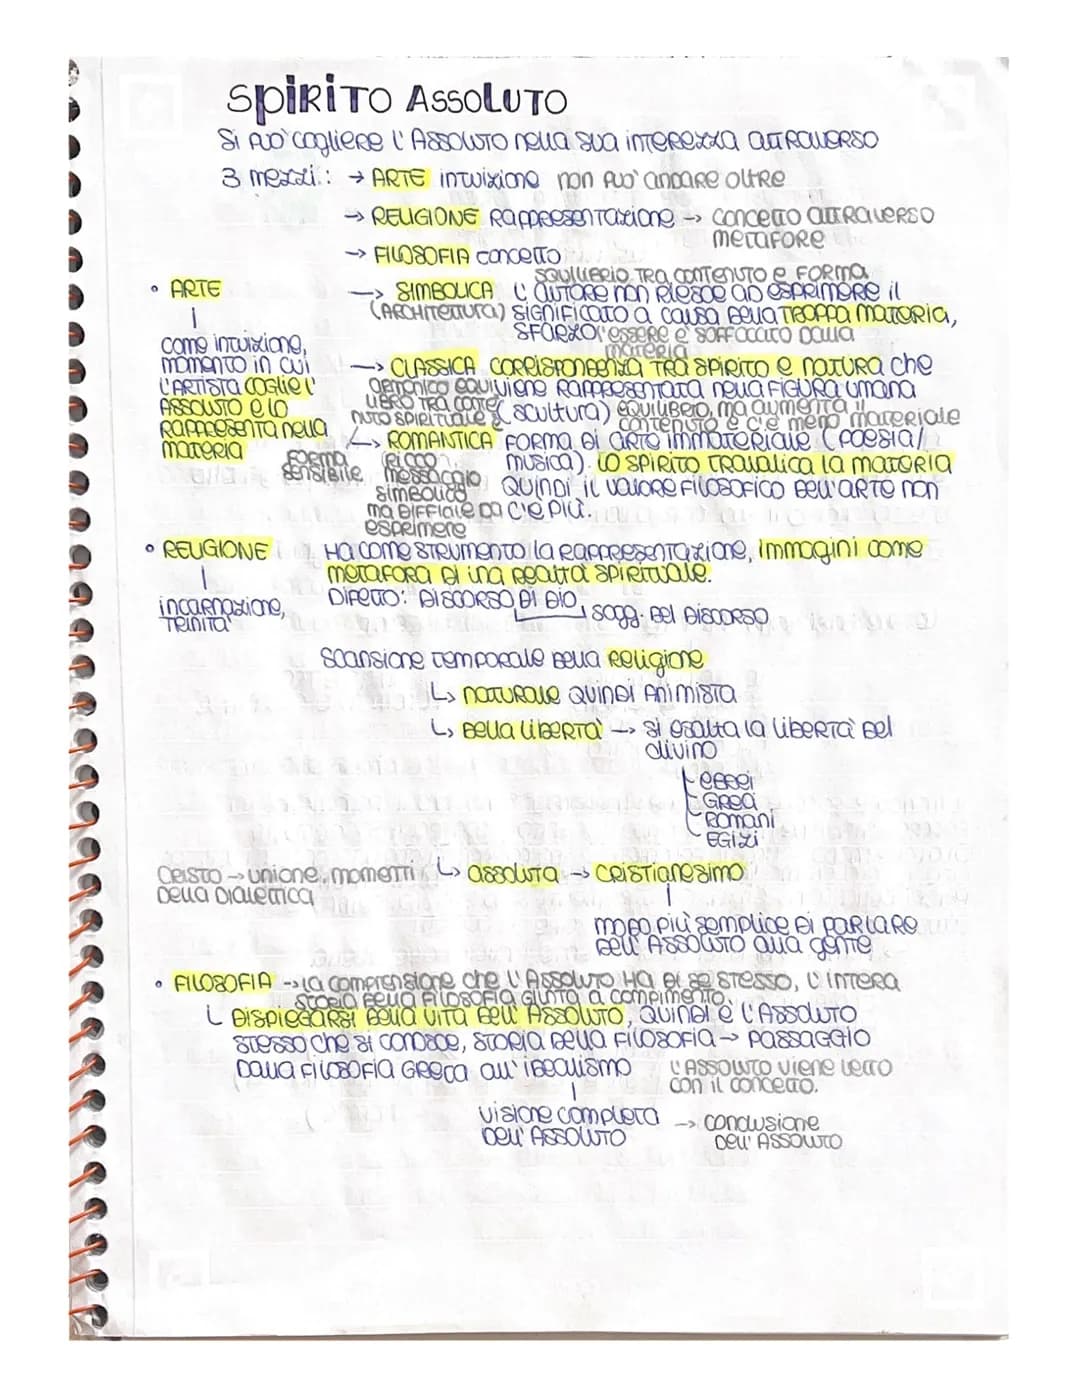 SPIRITO ASSOLUTO
Si può cogliere l'Assoluto nella sua interezza attraverso
3 mezzi: → ARTE intuizione non può andare oltre
→ RELIGIONE Rappresentazione → concetto attraverso
metafore
→ FILOSOFIA concetto
squilibrio tra contenuto e forma
• ARTE → SIMBOLICA L'autore non riesce ad esprimere il
(Architettura) significato a causa della troppa materia,
sforzo l'essere è soffocato dalla
materia
come intuizione,
momento in cui
l'artista coglie l'
Assoluto e lo
rappresenta nella
materia
forma
sensibile
→ CLASSICA corrispondenza tra spirito e natura che
viene rappresentata nella figura umana
(scultura) equilibrio, ma aumenta il
contenuto e c'è meno materiale
→ ROMANTICA forma di arte immateriale (poesia/
musica). Lo spirito travalica la materia
Quindi il valore filosofico dell'arte non
c'è più.
(ricco
messaggio
simbolico
ma difficile da
esprimere
• RELIGIONE Ha come strumento la rappresentazione, immagini come
metafora di una realtà spirituale.
incarnazione,
Trinità
Difetto: Discorso di Dio
sogg. del discorso
Scansione temporale della Religione
↳ naturale quindi animista
↳ della libertà → si esalta la libertà del
divino
ebrei
Greci
Romani
Egizi
Cristo → unione, momenti
della dialettica
↳ assoluta → cristianesimo
modo più semplice di parlare
dell'Assoluto alla gente
• FILOSOFIA → la comprensione che l'Assoluto ha di se stesso, l'intera
storia della filosofia giunta a compimento.
↳ Dispiegarsi della vita dell'Assoluto, quindi è l'Assoluto
stesso che si conosce, storia della filosofia → passaggio
dalla filosofia greca all'idealismo
l'Assoluto viene letto
con il concetto.
visione completa
dell'Assoluto
→ conclusione
dell'Assoluto